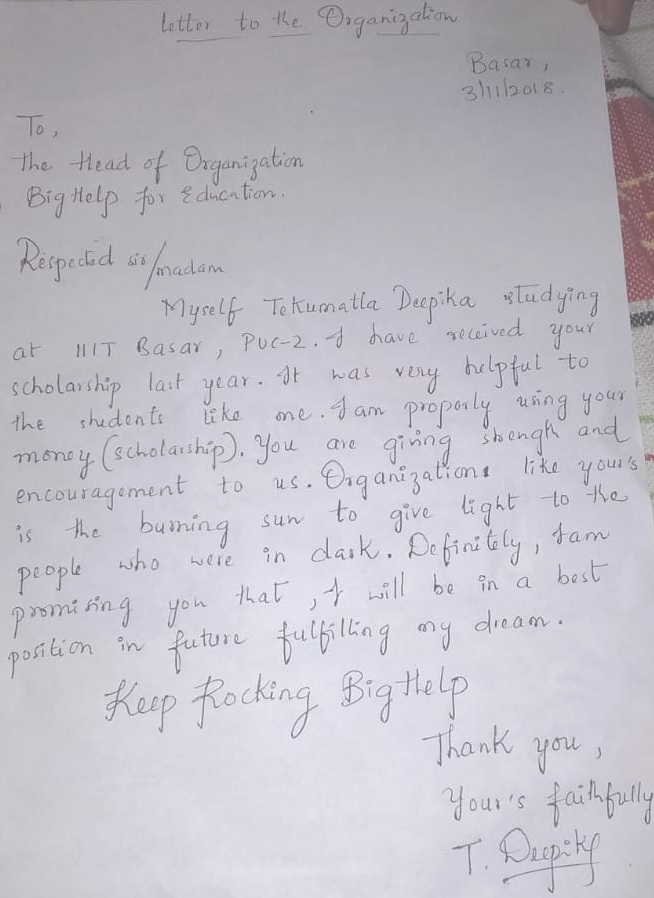 Letter to the Organization
Basar,
3/11/2018.
To,
The Head of Organization
Big Help for Education.
Respected sir/madam
Myself Tekumatla Deepika studying
at IIIT Basar, PUC-2. I have received your
scholarship last year. It was very helpful to
the students like me. I am properly using your
money (scholarship). You are giving strength and
encouragement to us. Organizations like your's
is the burning sun to give light to the
people who were in dark. Definitely, I am
promising you that, I will be in a best
position in future fulfilling my dream.
Keep Rocking Big Help
Thank you,
Your's faithfully
T. Deepika